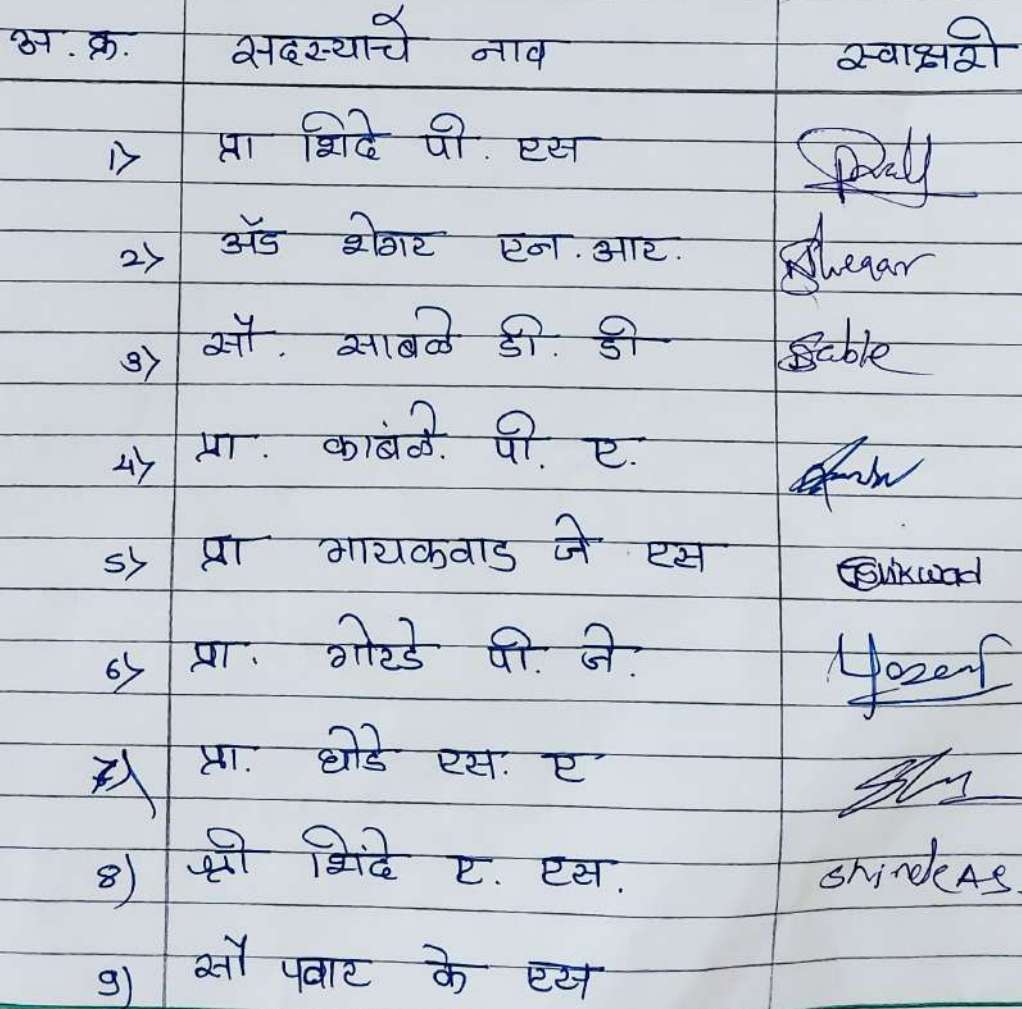 अ.क्र. सदस्याचे नाव स्वाक्षरी
1> प्रा शिंदे पी. एस
2> ॲड शेगर एन.आर. Shegar
3) सौ. साबळे डी. डी Sable
4> प्रा. कांबळे. पी. ए.
5> प्रा गायकवाड जे एस Gaikwad
6> प्रा. गोरडे पी. जे.
7) प्रा. घोडे एस. ए
8) श्री शिंदे ए. एस. Shinde AS.
9) सौ पवार के एस